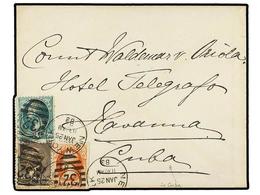 Count Waldemar v. Oriola
Hotel Telegrafo
Havanna
Cuba
NE
JAN 25
83
JAN 25
83